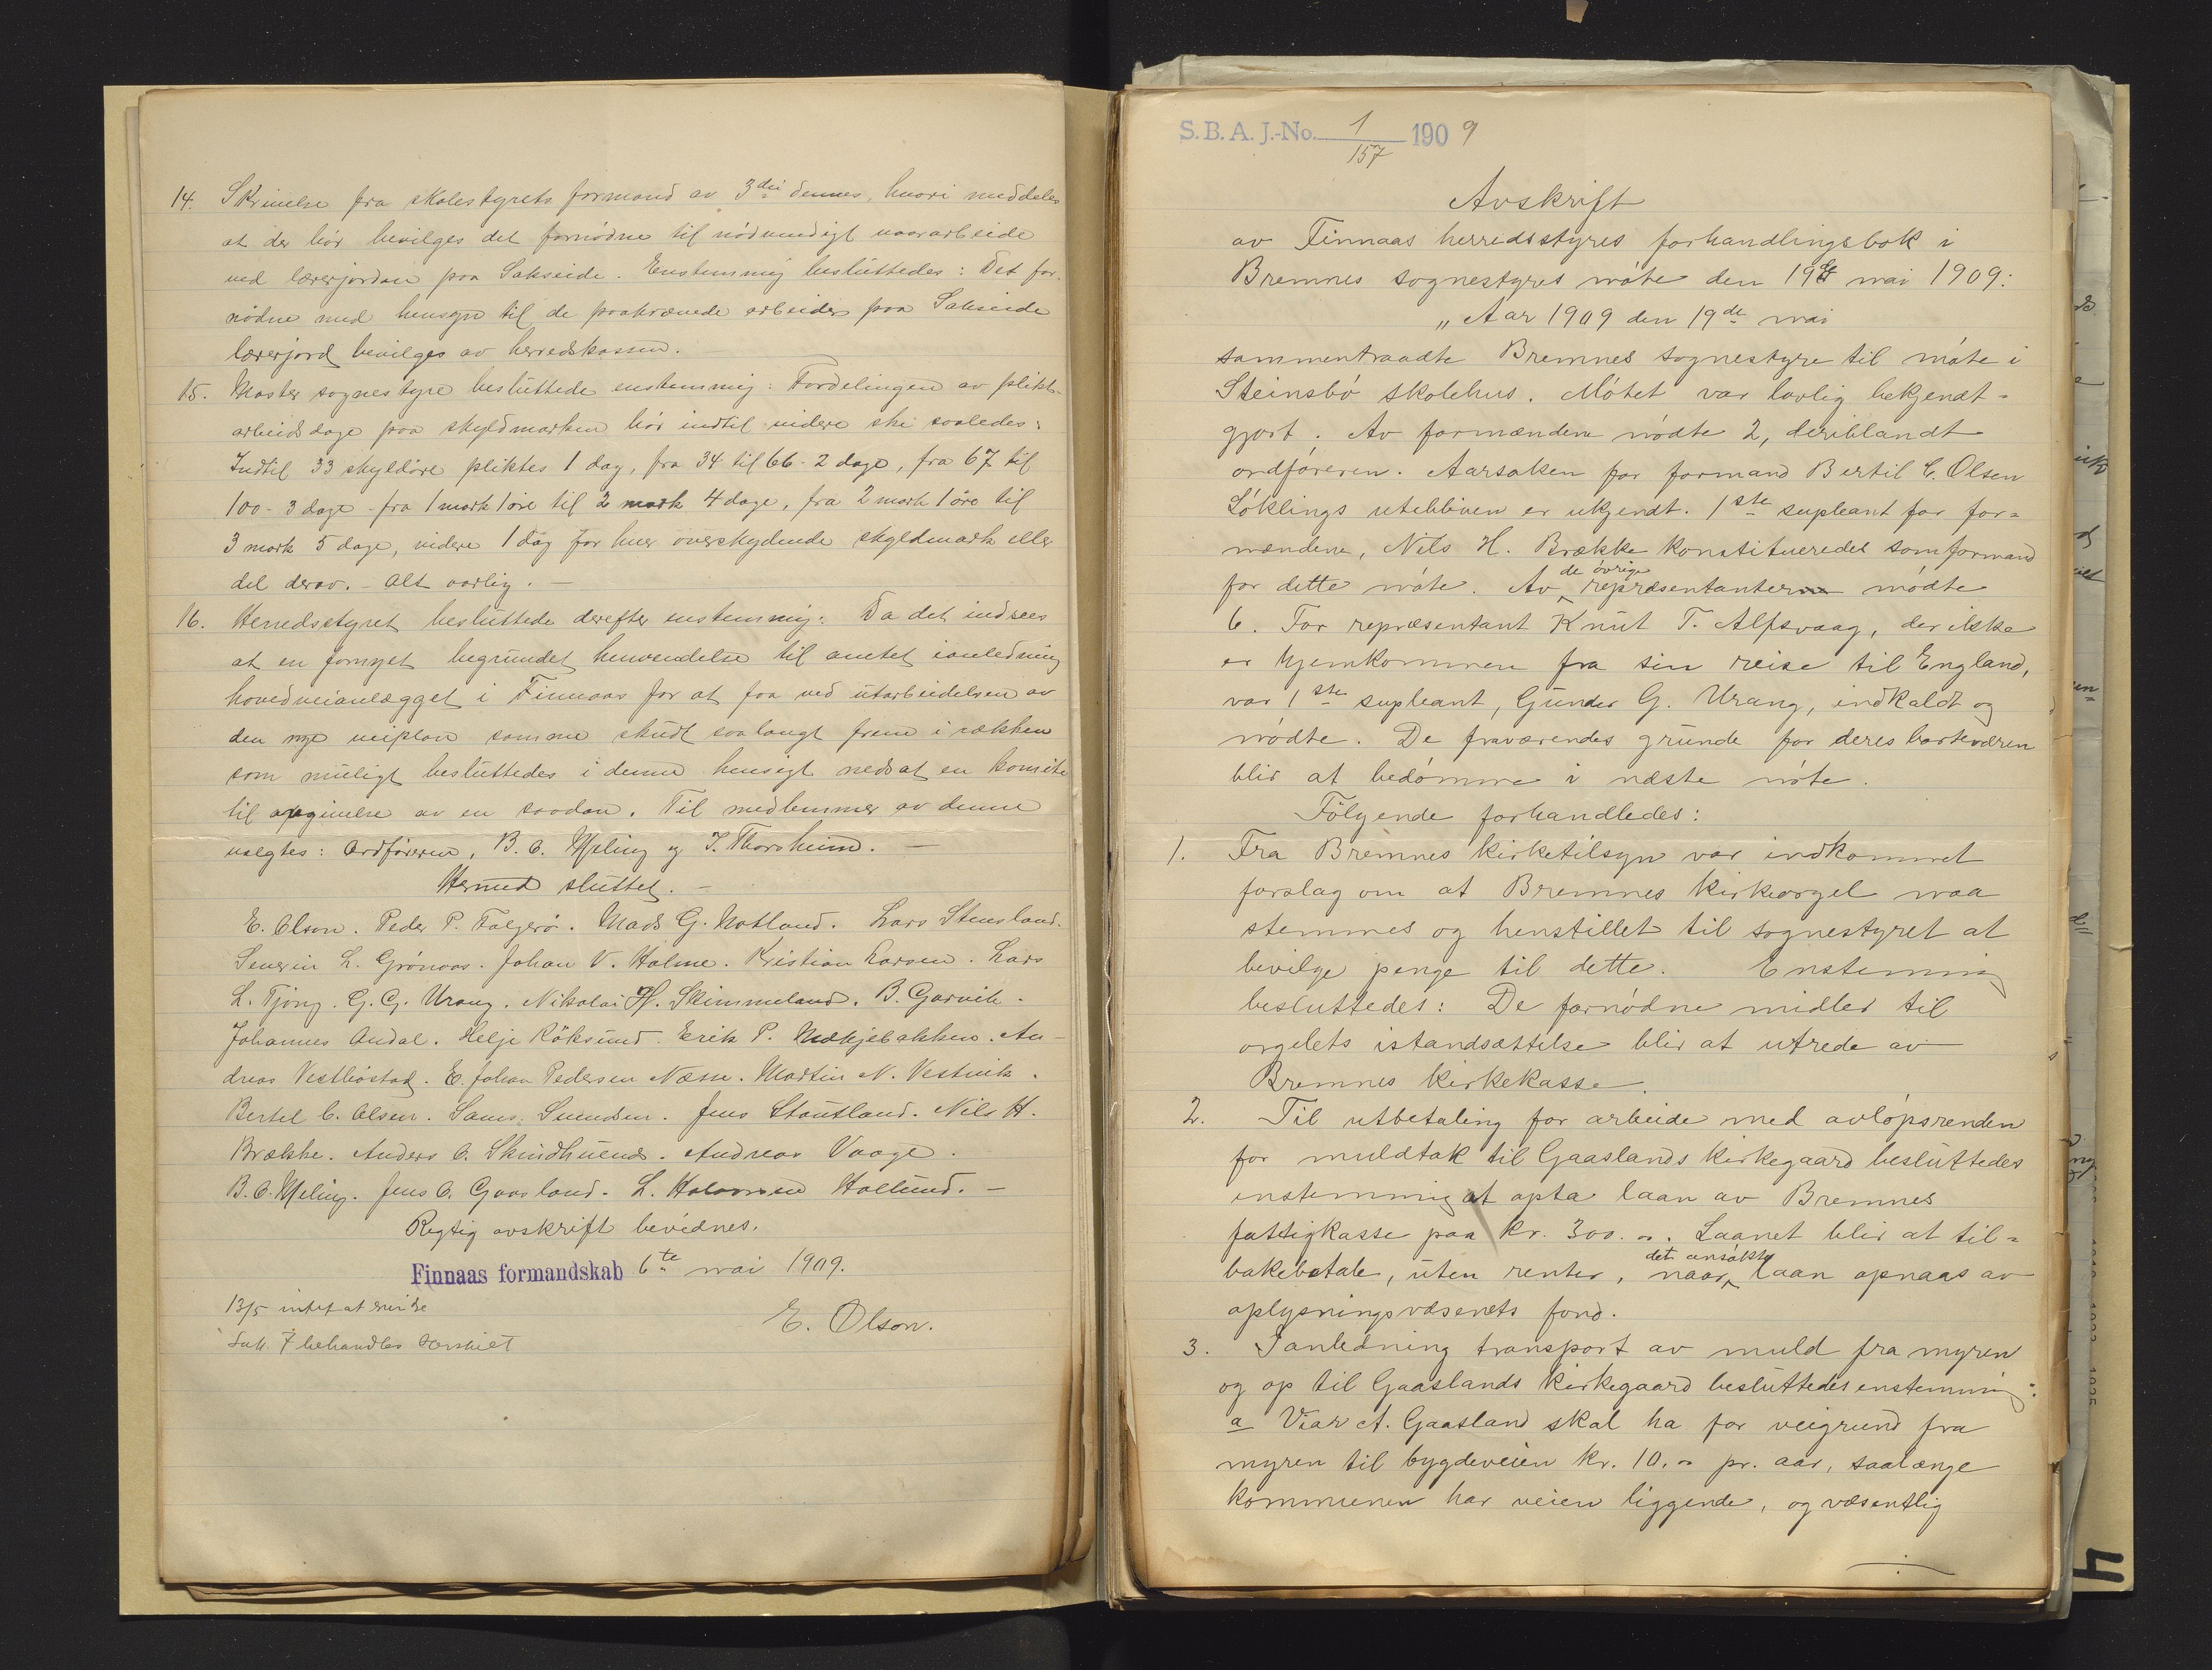 14. Skrivelse fra skolestyrets formand av 3die dennes, hvori meddeles
at der bör bevilges det fornödne til nödvendigt vaararbeide
ved lærerjorden paa Sakseide. Enstemmig besluttedes: Det for-
nödne med hensyn til de paakrævede arbeider paa Sakseide
lærerjord bevilges av herredskassen.
15. Moster sognestyre besluttede enstemmig: Fordelingen av plikt-
arbeidsdage paa skyldmarken bör indtil videre ske saaledes:
Indtil 33 skyldöre pliktes 1 dag, fra 34 til 66 - 2 dage, fra 67 til
100 - 3 dage - fra 1 mark 1 öre til 2 mark 4 dage, fra 2 mark 1 öre til
3 mark 5 dage, videre 1 dag for hver overskydende skyldmark eller
del derav. - Alt aarlig. -
16. Herredsstyret besluttede derefter enstemmig: Da det indsees
at en fornyet begrundet henvendelse til amtet i anledning
hovedveianlægget i Finnaas for at faa ved utarbeidelsen av
den nye veiplan samme skudt saalangt frem i rækken
som muligt besluttedes i denne hensigt nedsat en komite
til avgivelse av en saadan. Til medlemmer av denne
valgtes: Ordföreren, B. C. Meling og T. Thorsheim. -
Hermed sluttet. -
E. Olson. Peder P. Folgerö. Mads G. Notland. Lars Stensland.
Severin L. Grönaas. Johan V. Holme. Kristian Larsen. Lars
L. Tjong. G. G. Urang. Nikolai H. Skimmeland. B. Garvik.
Johannes Andal. Helje Röksund. Erik P. Mækjebakken. An-
dreas Vestböstad. E. Johan Pedersen Næss. Martin N. Vestvik.
Bertel C. Olsen. Sams. Svendsen. Jens Stautland. Nils H.
Brække. Anders O. Skindhuend. Andreas Vaage.
B. C. Meling. Jens O. Gaasland. L. Halvorsen Hallund. -
Rigtig avskrift bevidnes.
Finnaas formandskab 6te mai 1909.
E. Olson.
13/5 intet at erindre
Sak 7 behandles særskilt
S. B. A. J.-No. 1/157 1909
Avskrift
av Finnaas herredsstyres forhandlingsbok i
Bremnes sognestyres möte den 19de mai 1909:
"Aar 1909 den 19de mai
sammentraadte Bremnes sognestyre til möte i
Steinsbö skolehus. Mötet var lovlig bekjendt=
gjort. Av formændene mödte 2, deriblandt
ordföreren. Aarsaken for formand Bertil C. Olsen
Löklings utebliven er ukjendt. 1ste supleant for for=
mændene, Nels H. Brække konstitueredes som formand
for dette möte. Av de övrige repræsentanter mödte
6. For repræsentant Knut T. Alfsvaag, der ikke
er hjemkommen fra sin reise til England,
var 1ste supleant, Gunder G. Urang, indkaldt og
mödte. De fraværendes grunde for deres borteværen
blir at bedömme i næste möte.
Fölgende forhandledes:
1. Fra Bremnes kirketilsyn var indkommet
forslag om at Bremnes kirkeorgel maa
stemmes og henstillet til sognestyret at
bevilge penge til dette. Enstemmig
besluttedes: De fornödne midler til
orgelets istandsættelse blir at utrede av
Bremnes kirkekasse.
2. Til utbetaling for arbeide med avlöpsrenden
for muldtak til Gaaslands kirkegaard besluttedes
enstemmig at opta laan av Bremnes
fattigkasse paa kr. 300.00. Laanet blir at til=
bakebetale, uten renter, naar det ansökte laan opnaas av
oplysningsvæsenets fond.
3. I anledning transport av muld fra myren
og op til Gaaslands kirkegaard besluttedes enstemmig:
a Viar A. Gaasland skal ha for veigrund fra
myren til bygdeveien kr. 10.00 pr. aar, saalænge
kommunen har veien liggende, og væsentlig